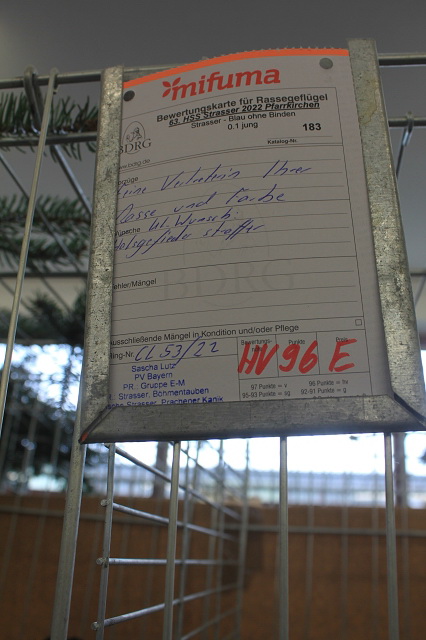 mifuma
Bewertungskarte für Rassegeflügel
63. HSS Strasser 2022 Pfarrkirchen
Strasser - Blau ohne Binden
0.1 jung
183
Katalog-Nr.
BDRG
www.bdrg.de
Vorzüge
Feine Vertreterin Ihrer
Rasse und Farbe
Wünsche
Halsgefieder straffer
BDRG
Fehler/Mängel
Ausschließende Mängel in Kondition und/oder Pflege
Ring-Nr. CL 53/22
Bewertungs-
Punkte
Preis
HV 96 E
Sascha Lutz
PV Bayern
PR.: Gruppe E-M
Strasser, Böhmentauben
Strasser, Prachener Kanik
97 Punkte = v
96 Punkte = hv
95-93 Punkte = sg
92-91 Punkte = g